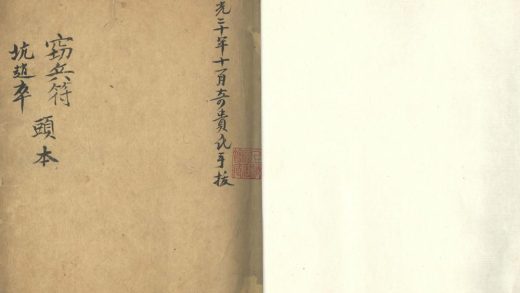 光二十年十一月奇貴氏手拔
窃兵符 頭本
坑趙卒